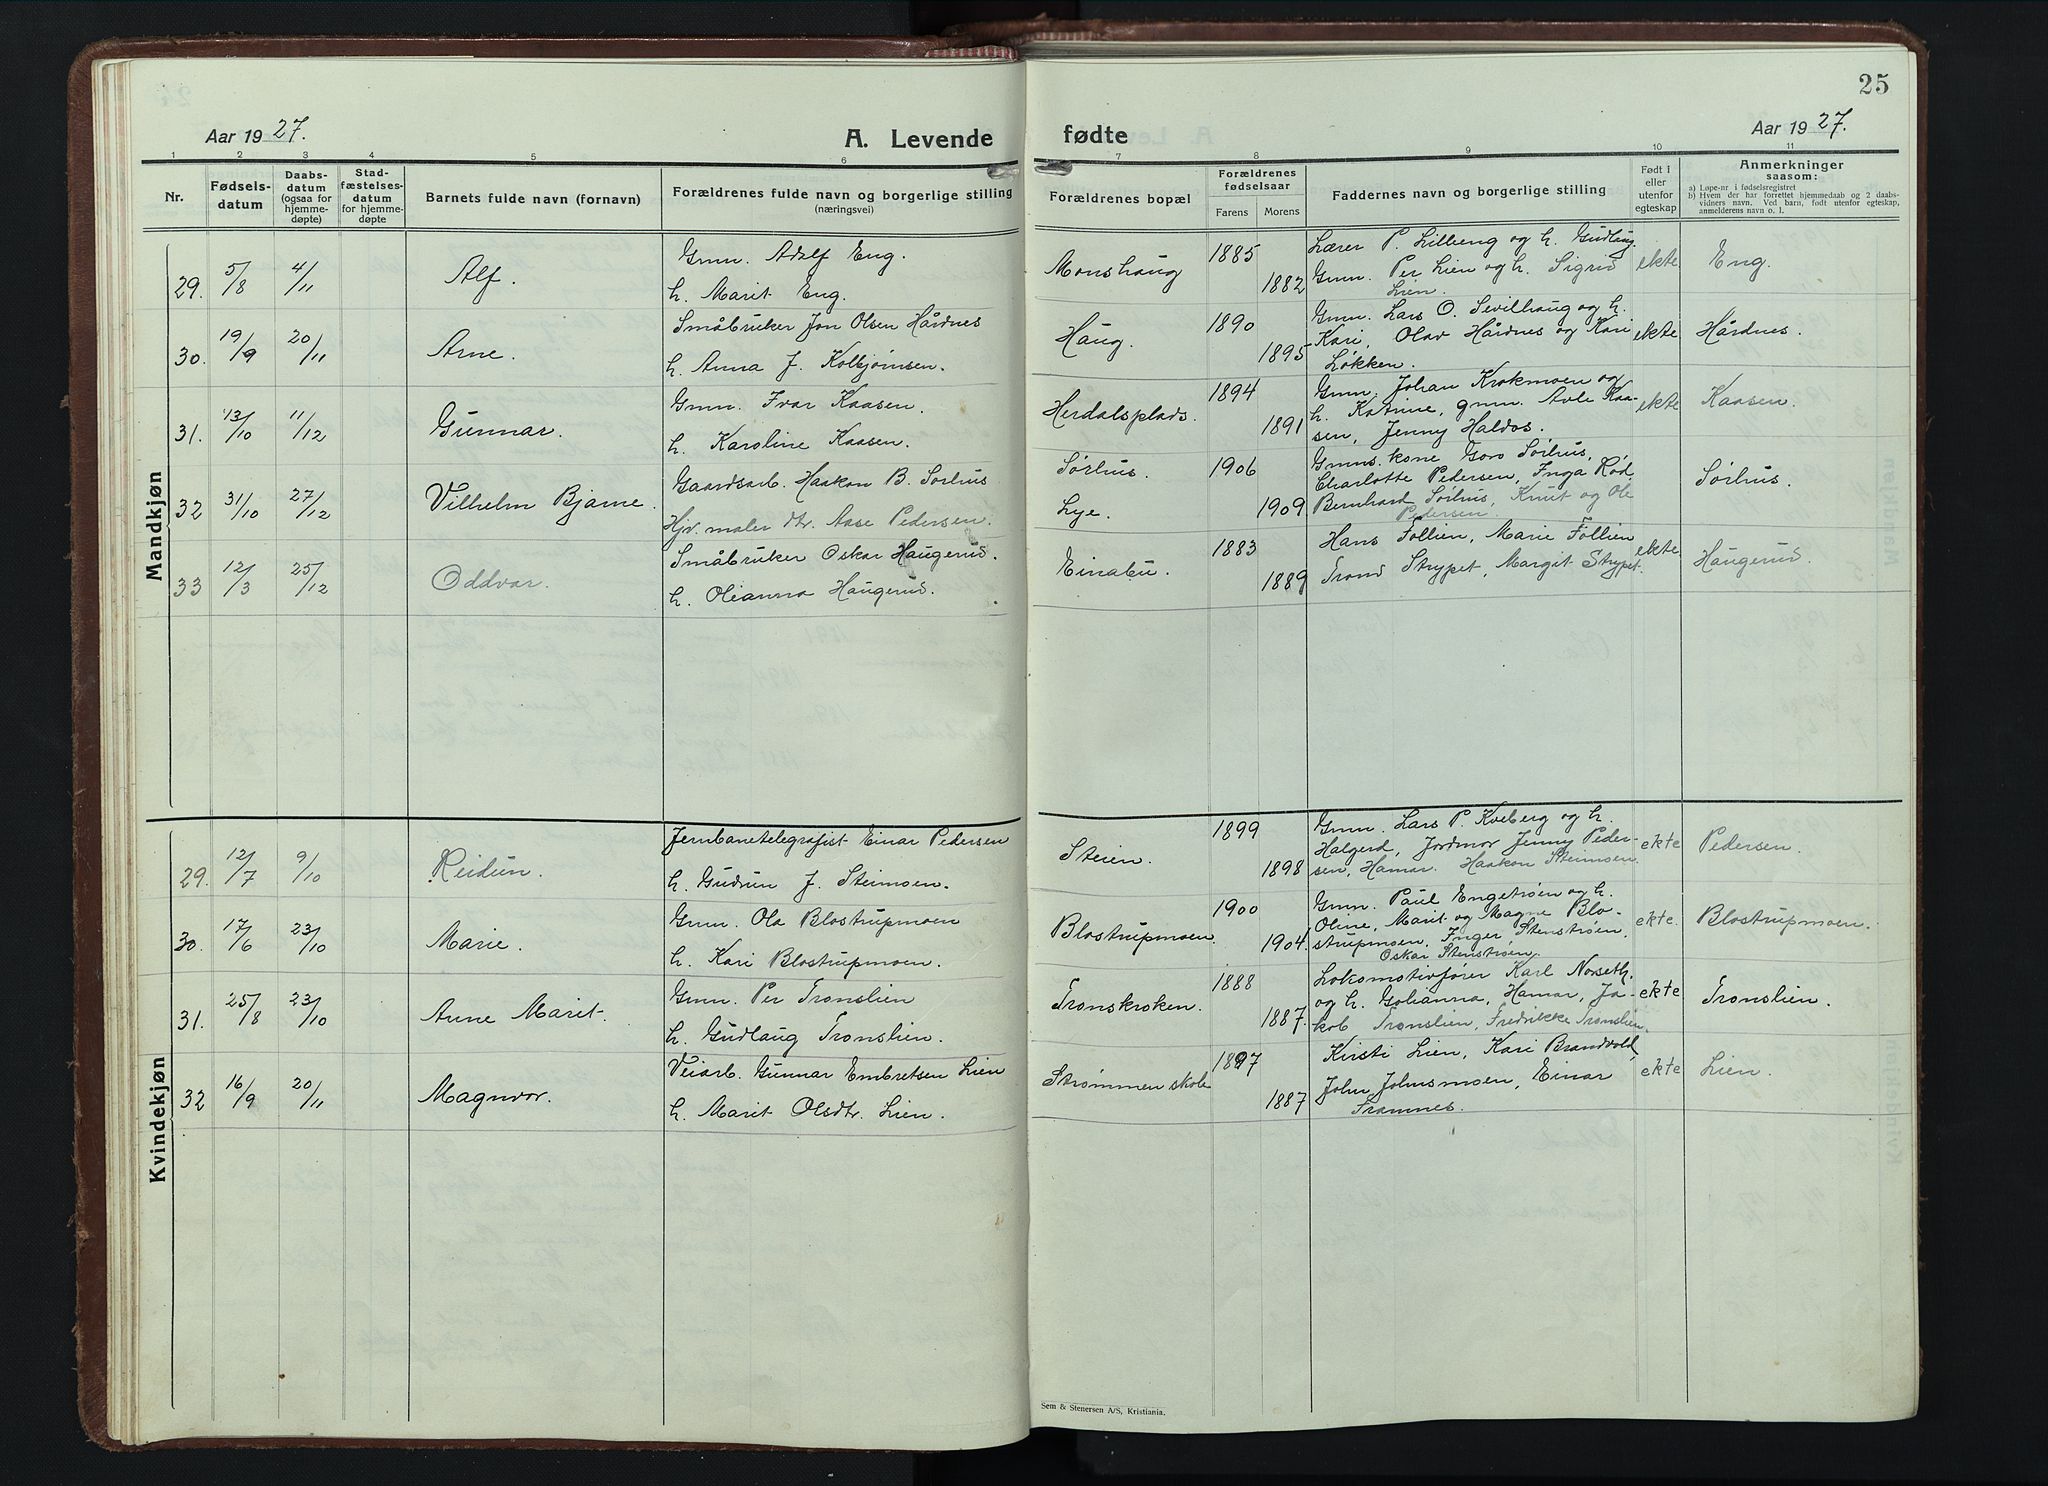 25
Aar 1927.
A. Levende fødte
Aar 1927.
1 2 3 4 5 6 7 8 9 10 11
Nr.
Fødselsdatum
Daabsdatum (ogsaa for hjemmedøpte)
Stadfæstelsesdatum for hjemmedøpte
Barnets fulde navn (fornavn)
Forældrenes fulde navn og borgerlige stilling (næringsvei)
Forældrenes bopæl
Forældrenes fødselsaar
Farens Morens
Faddernes navn og borgerlige stilling
Født i eller utenfor egteskap
Anmerkninger saasom:
a) Løpe-nr i fødselsregistret
b) Hvem der har forrettet hjemmedaab og 2 daabsvidners navn. Ved barn, født utenfor egteskap, anmelderens navn o. l.
Mandkjøn
29. 5/8 4/11 Alf.
Gmn. Adolf Eng.
h. Marit Eng.
Monshaug 1885 1882
Lærer P. Lilleeng og h. Gudlaug.
Gmn. Per Lien og h. Sigrid
Lien.
ekte Eng.
30. 19/9 20/11 Arne.
Småbruker Jon Olsen Hårdnes
h. Anna J. Kolbjørnsen.
Haug. 1890 1895
Gmn. Lars O. Sevilhaug og h.
Kari, Olav Hårdnes og Kari
Løkken.
ekte Hårdnes.
31. 13/10 11/12 Gunnar.
Gmn. Ivar Kaasen.
h. Karoline Kaasen.
Herdalsplads. 1894 1891
Gmn. Johan Krokmoen og
h. Katrine, gmn. Avle Kaa-
sen, Jenny Haldos.
ekte Kaasen.
32 31/10 27/12 Vilhelm Bjarne.
Gaardsarb. Haakon B. Sørhus
Hjv. maler dtr. Aase Pedersen.
Sørhus. Lye. 1906 1909
Gmns. kone Goro Sørhus,
Charlotte Pedersen, Inga Rød
Bernhard Sørhus, Knut og Ole
Pedersen.
Sørhus.
33 12/3 25/12 Oddvar.
Småbruker Oskar Haugerud.
h. Olianna Haugerud.
Einabu. 1883 1889
Hans Follien, Marie Follien
Trond Strypet, Margit Strypet.
ekte Haugerud.
Kvindekjøn
29. 12/7 9/10 Reidun.
Jernbanetelegrafist Einar Pedersen
h. Gudrun J. Steimoen.
Steien. 1899 1898
Gmn. Lars P. Kveberg og h.
Halgerd, Jordmor Jenny Peder-
sen, Hamar. Haakon Steimoen
ekte Pedersen.
30. 17/6 23/10 Marie.
Gmn. Ola Blostrupmoen
h. Kari Blostrupmoen.
Blostrupmoen. 1900 1904.
Gmn. Paul Engetrøen og h.
Oline, Marit og Magne Blo-
strupmoen, Inger Stenstrøen,
Oskar Stenstrøen.
ekte. Blostrupmoen.
31. 25/8 23/10 Anne Marit.
Gmn. Per Tronslien
h. Gudlaug Tronslien.
Tronskroken. 1888 1887.
Lokomotivfører Karl Norseth.
og h. Golianna, Hamar, Ja-
kob Tronslien, Fredrikke Tronslien.
ekte Tronslien.
32 16/9 20/11 Magnvor.
Veiarb. Gunnar Embretsen Lien
h. Marit Olsdtr. Lien.
Strømmen skole 1897 1887
Kirsti Lien, Kari Brandvold,
John Johnsmoen, Einar
Framnes.
ekte Lien.
Sem & Stenersen A/S, Kristiania.